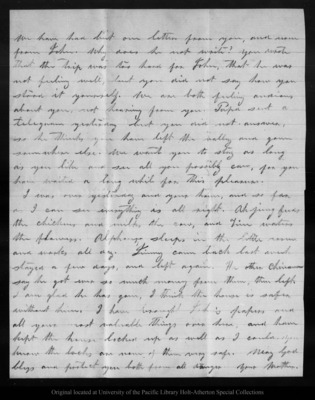 We have had but one letter from you, and none
from John. Why does he not write? You wrote
that the trip was too hard for John, that he was
not feeling well, but you did not say how you
stood it yourself. We are both feeling anxious
about you, not hearing from you Papa sent a
telegram yesterday but you did not answer,
so he thinks you have left the valley and gone
somewhere else. We want you to stay as long
as you like and see all you possibly can, for you
have waited a long while for this pleasure.
I was over yesterday and your them, and so far
as I can see everything is all right. Ah feeds
the chickens and milks the cow, and Jim waters
the flowers. sleeps in the room
and works all day. Jimmy came back last and
stayed a few days, and left again. The other Chinaman
say he got so much money from them, then left
I am glad he has gone, I think the house is safer
without him. I have brought papers and
all your most valuable things over here, and have
kept the house locked up as well as I could. you
know the locks are none of them very safe. May God
bless and protect you both from all danger. Your Mother.
Original located at University of the Pacific Library Holt-Atherton Special Collections